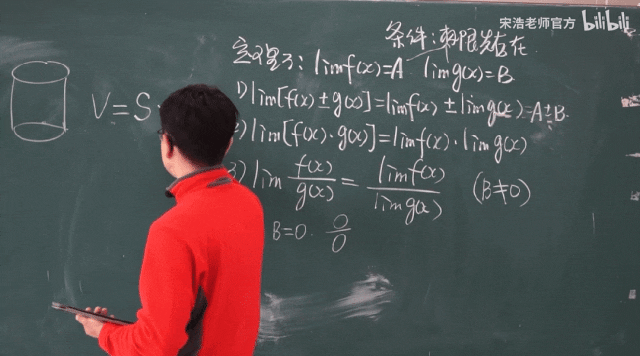 宋浩老师官方 bilibili
条件:极限存在.
定理3: lim f(x)=A lim g(x)=B
1) lim[f(x)±g(x)]=lim f(x) ± lim g(x)=A±B.
2) lim[f(x)·g(x)]=lim f(x)·lim g(x)
3) lim f(x)/g(x) = lim f(x)/lim g(x) (B≠0)
B=0. 0/0
V=S